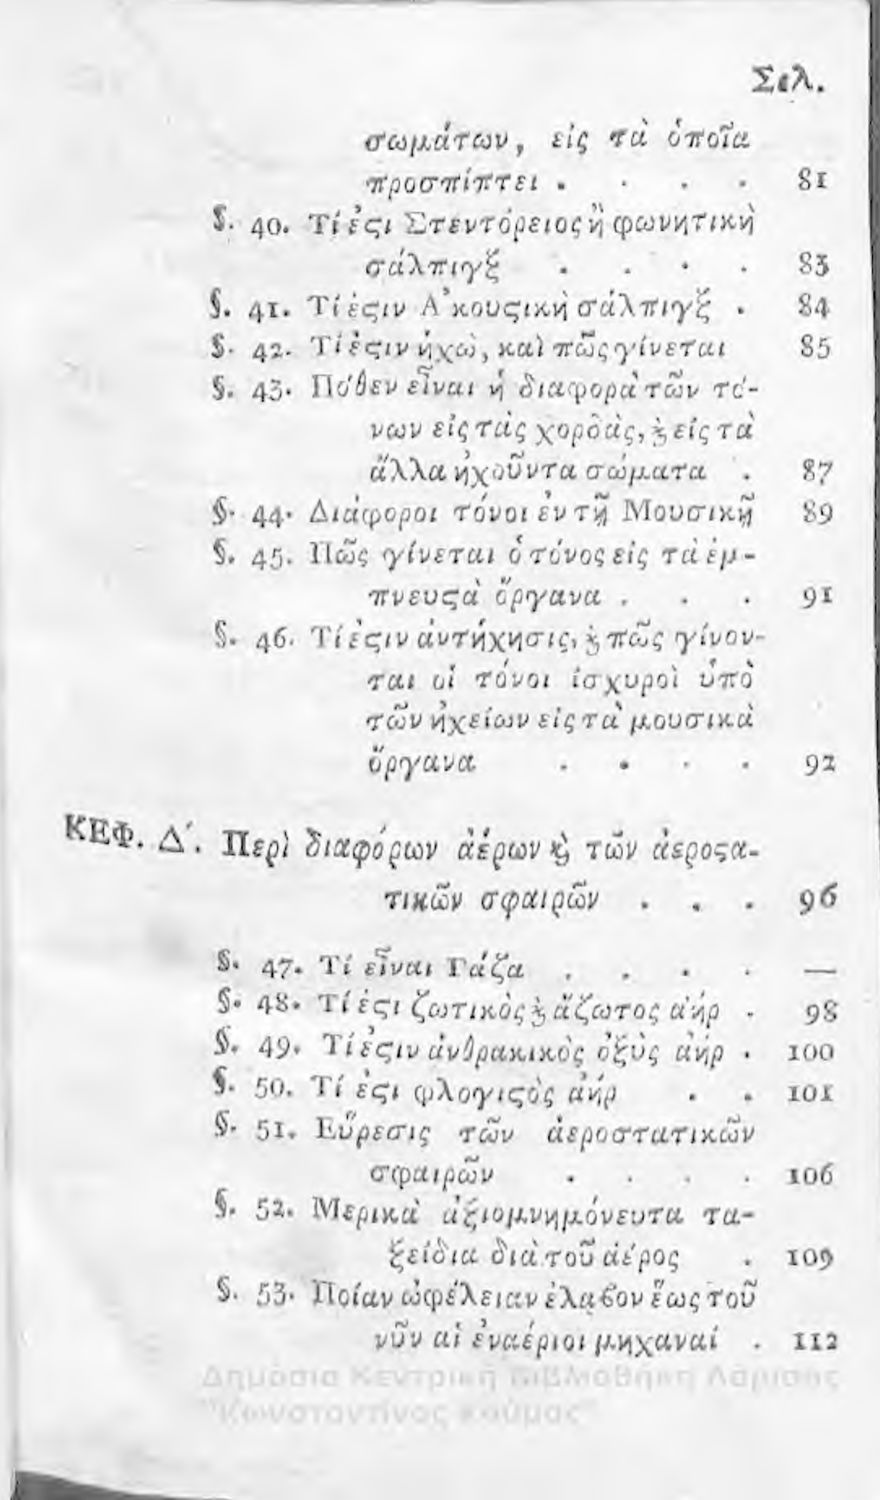 Σελ.
σωμάτων, εἰς τὰ ὁποῖα
προσπίπτει . . . . 81
§. 40. Τί ἐϛι Στεντόρειος ἢ φωνητικὴ
σάλπιγξ . . . . 83
§. 41. Τί ἐϛιν Ἀκουϛικὴ σάλπιγξ . 84
§. 42. Τί ἐϛιν ἠχὼ, καὶ πῶς γίνεται 85
§. 43. Πόθεν εἶναι ἡ διαφορὰ τῶν τό-
νων εἰς τὰς χορδὰς, ϗ εἰς τὰ
ἄλλα ἠχοῦντα σώματα . 87
§. 44. Διάφοροι τόνοι ἐν τῇ Μουσικῇ 89
§. 45. Πῶς γίνεται ὁ τόνος εἰς τὰ ἐμ-
πνευϛὰ ὄργανα . . . 91
§. 46. Τί ἐϛιν ἀντήχησις, ϗ πῶς γίνον-
ται οἱ τόνοι ἰσχυροὶ ὑπὸ
τῶν ἠχείων εἰς τὰ μουσικὰ
ὄργανα . . . . 92
ΚΕΦ. Δ΄. Περὶ διαφόρων ἀέρων ϗ τῶν ἀεροϛα-
τικῶν σφαιρῶν . . . 96
§. 47. Τί εἶναι Γάζα . . . . —
§. 48. Τί ἐϛι ζωτικὸς ϗ ἄζωτος ἀὴρ . 98
§. 49. Τί ἐϛιν ἀνθρακικὸς ὀξὺς ἀὴρ . 100
§. 50. Τί ἐϛι φλογιϛὸς ἀὴρ . . 101
§. 51. Εὕρεσις τῶν ἀεροστατικῶν
σφαιρῶν . . . . 106
§. 52. Μερικὰ ἀξιομνημόνευτα τα-
ξείδια διὰ τοῦ ἀέρος . 109
§. 53. Ποίαν ὠφέλειαν ἔλαϐον ἕως τοῦ
νῦν αἱ ἐναέριοι μηχαναί . 112
Δημόσια Κεντρική Βιβλιοθήκη Λάρισας
"Κωνσταντίνος Κούμας"